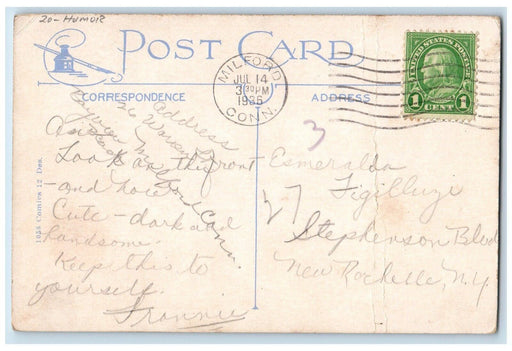 20-HUMOR
POST CARD
MILFORD
JUL 14
3 30PM
1936
CONN.
UNITED STATES POSTAGE
1 CENT 1
CORRESPONDENCE
ADDRESS
Address
Milford Conn.
Look on the front
- and how
Cute - dark and
handsome.
Keep this to
yourself.
Frannie
3
Esmeralda
27
Stephenson Blvd
New Rochelle, N.Y.
1035 Comics 12 Des.